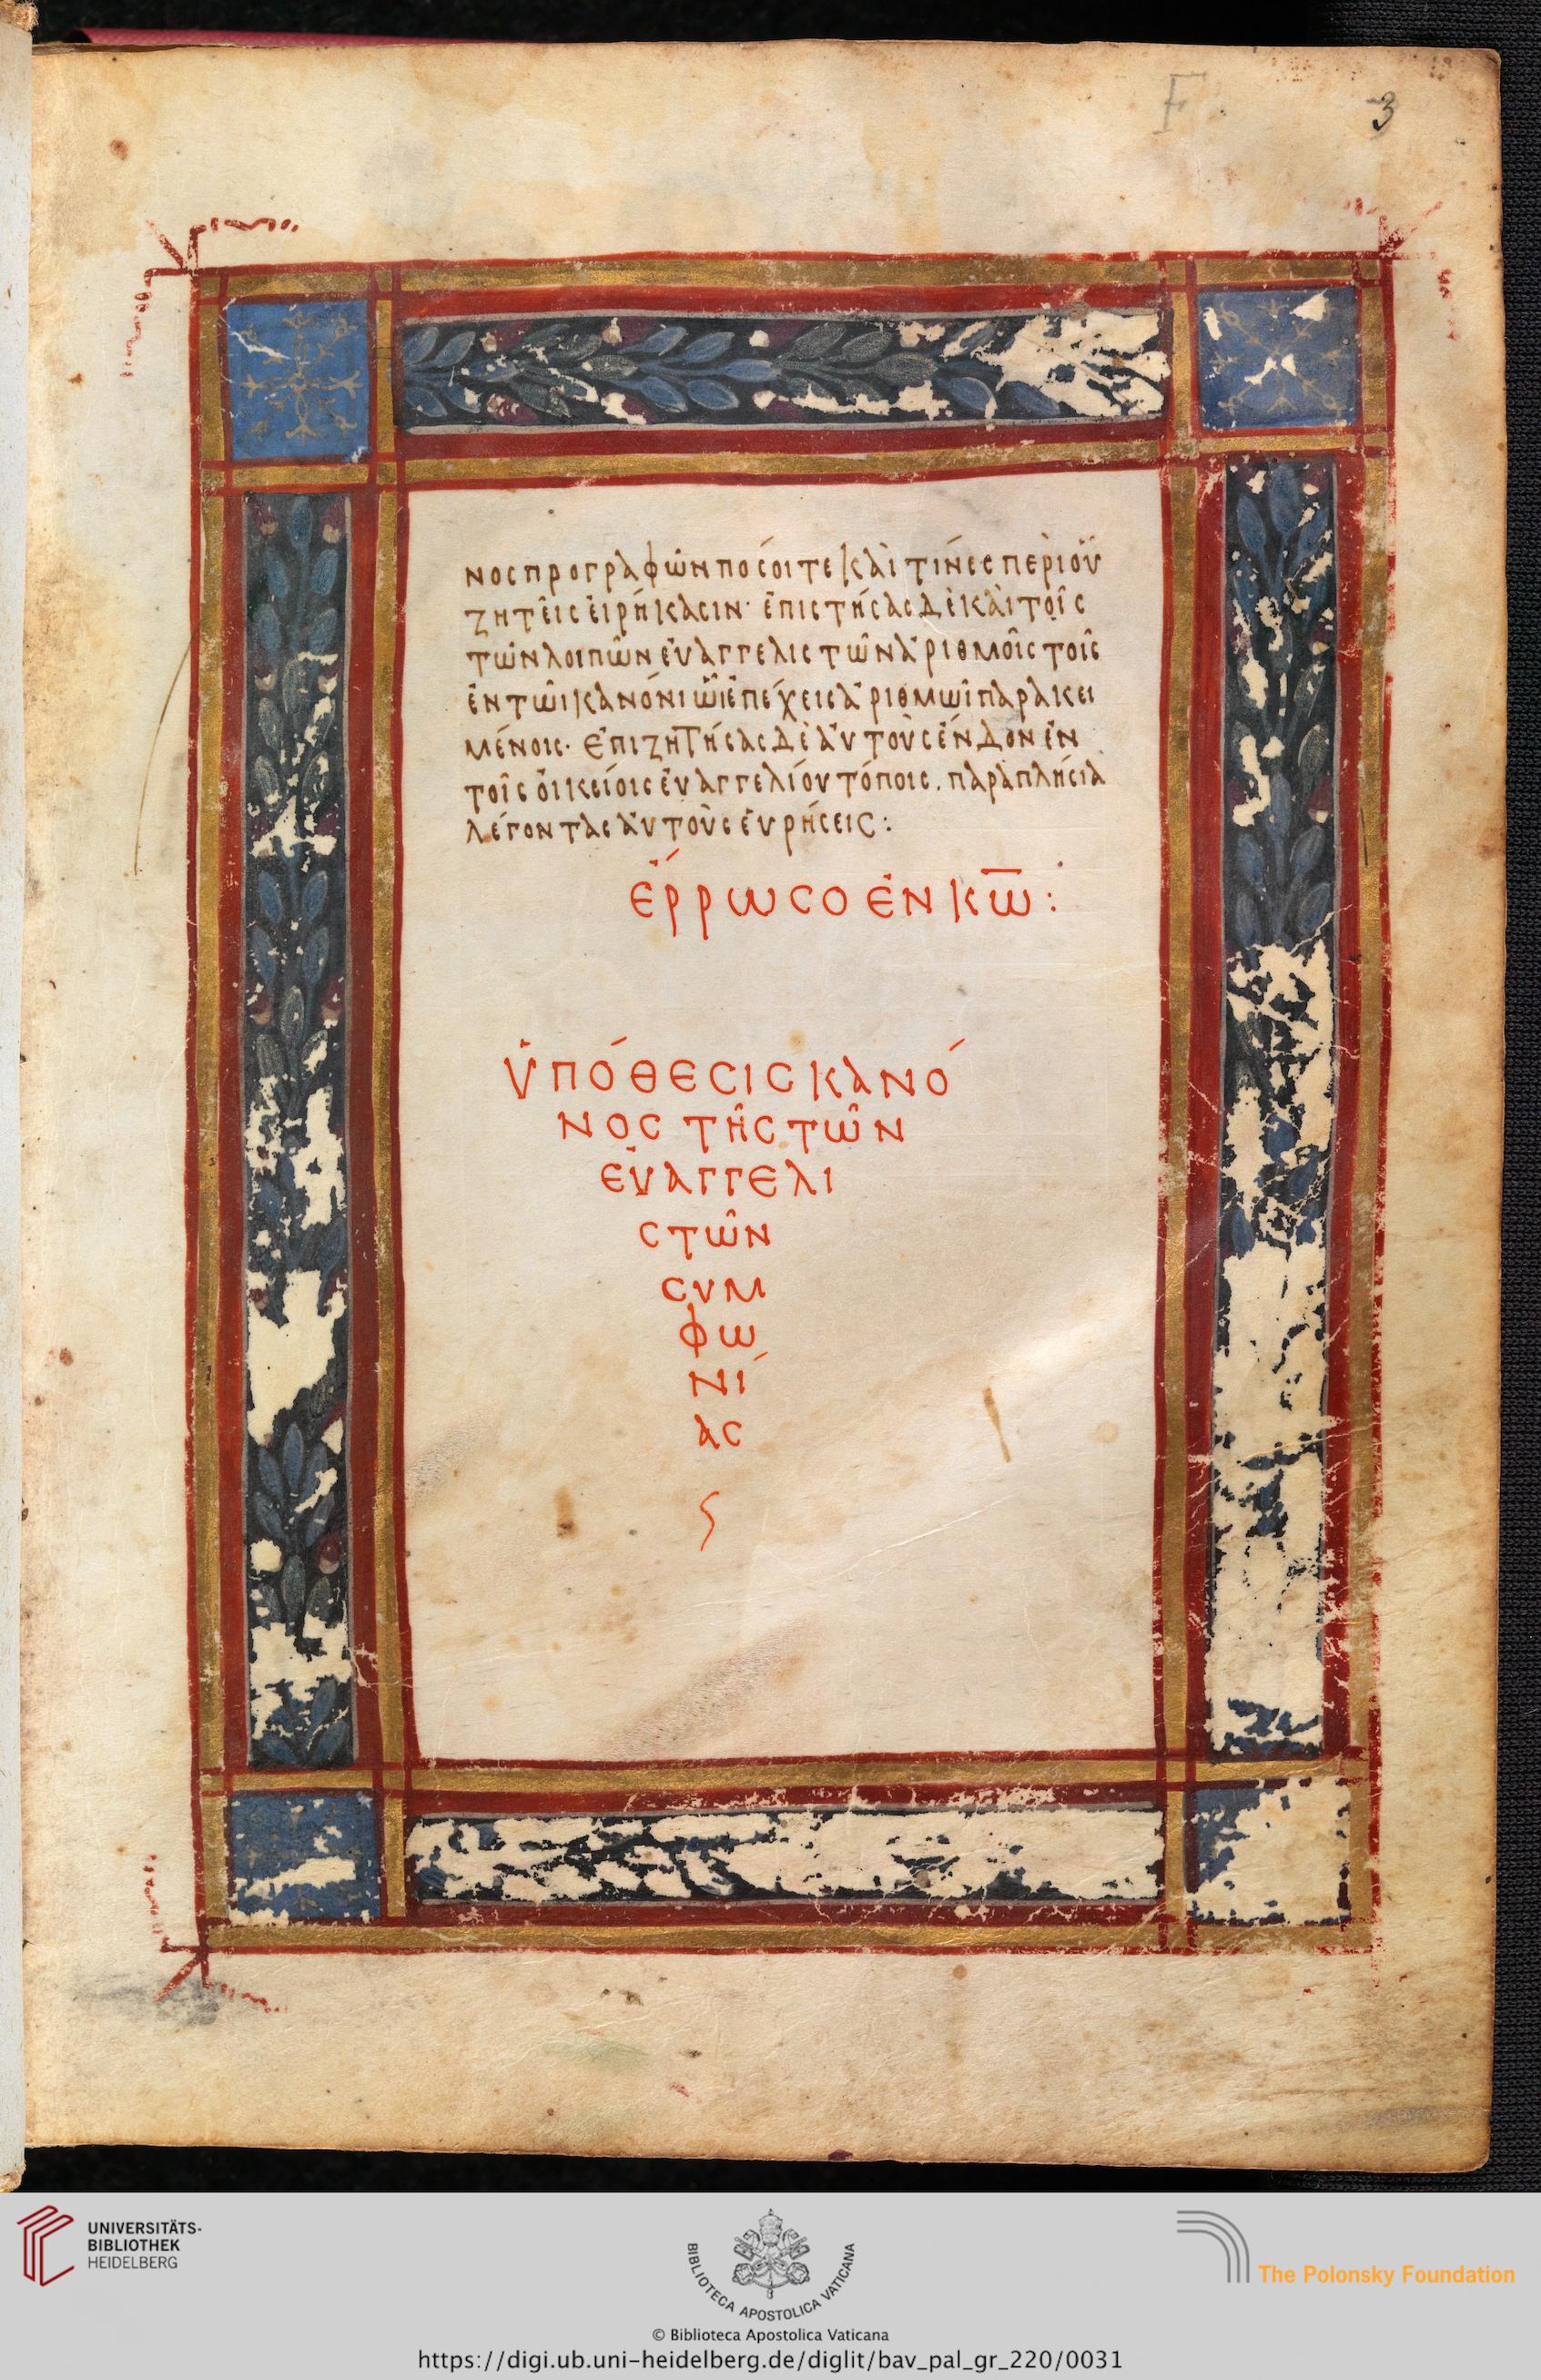 F
3
νος προγραφῶν πόσοι τε καὶ τίνες περὶ οὗ
ζητεῖς εἰρήκασιν· ἐπιστήσας δὲ καὶ τοῖς
τῶν λοιπῶν εὐαγγελιστῶν ἀριθμοῖς τοῖς
ἐν τῶι κανόνι ὧι ἐπέχεις ἀριθμῶι παρακει
μένοις· ἐπιζητήσας δὲ αὐτοὺς ἔνδον ἐν
τοῖς οἰκείοις εὐαγγελίου τόποις. παραπλήσια
λέγοντας αὐτοὺς εὑρήσεις:
ἔρρωσο ἐν κ̅ω̅:
ὑπόθεσις κανό
νος τῆς τῶν
εὐαγγελι
στῶν
συμ
φω
νί
ας
UNIVERSITÄTS-
BIBLIOTHEK
HEIDELBERG
BIBLIOTECA APOSTOLICA VATICANA
The Polonsky Foundation
© Biblioteca Apostolica Vaticana
https://digi.ub.uni-heidelberg.de/diglit/bav_pal_gr_220/0031